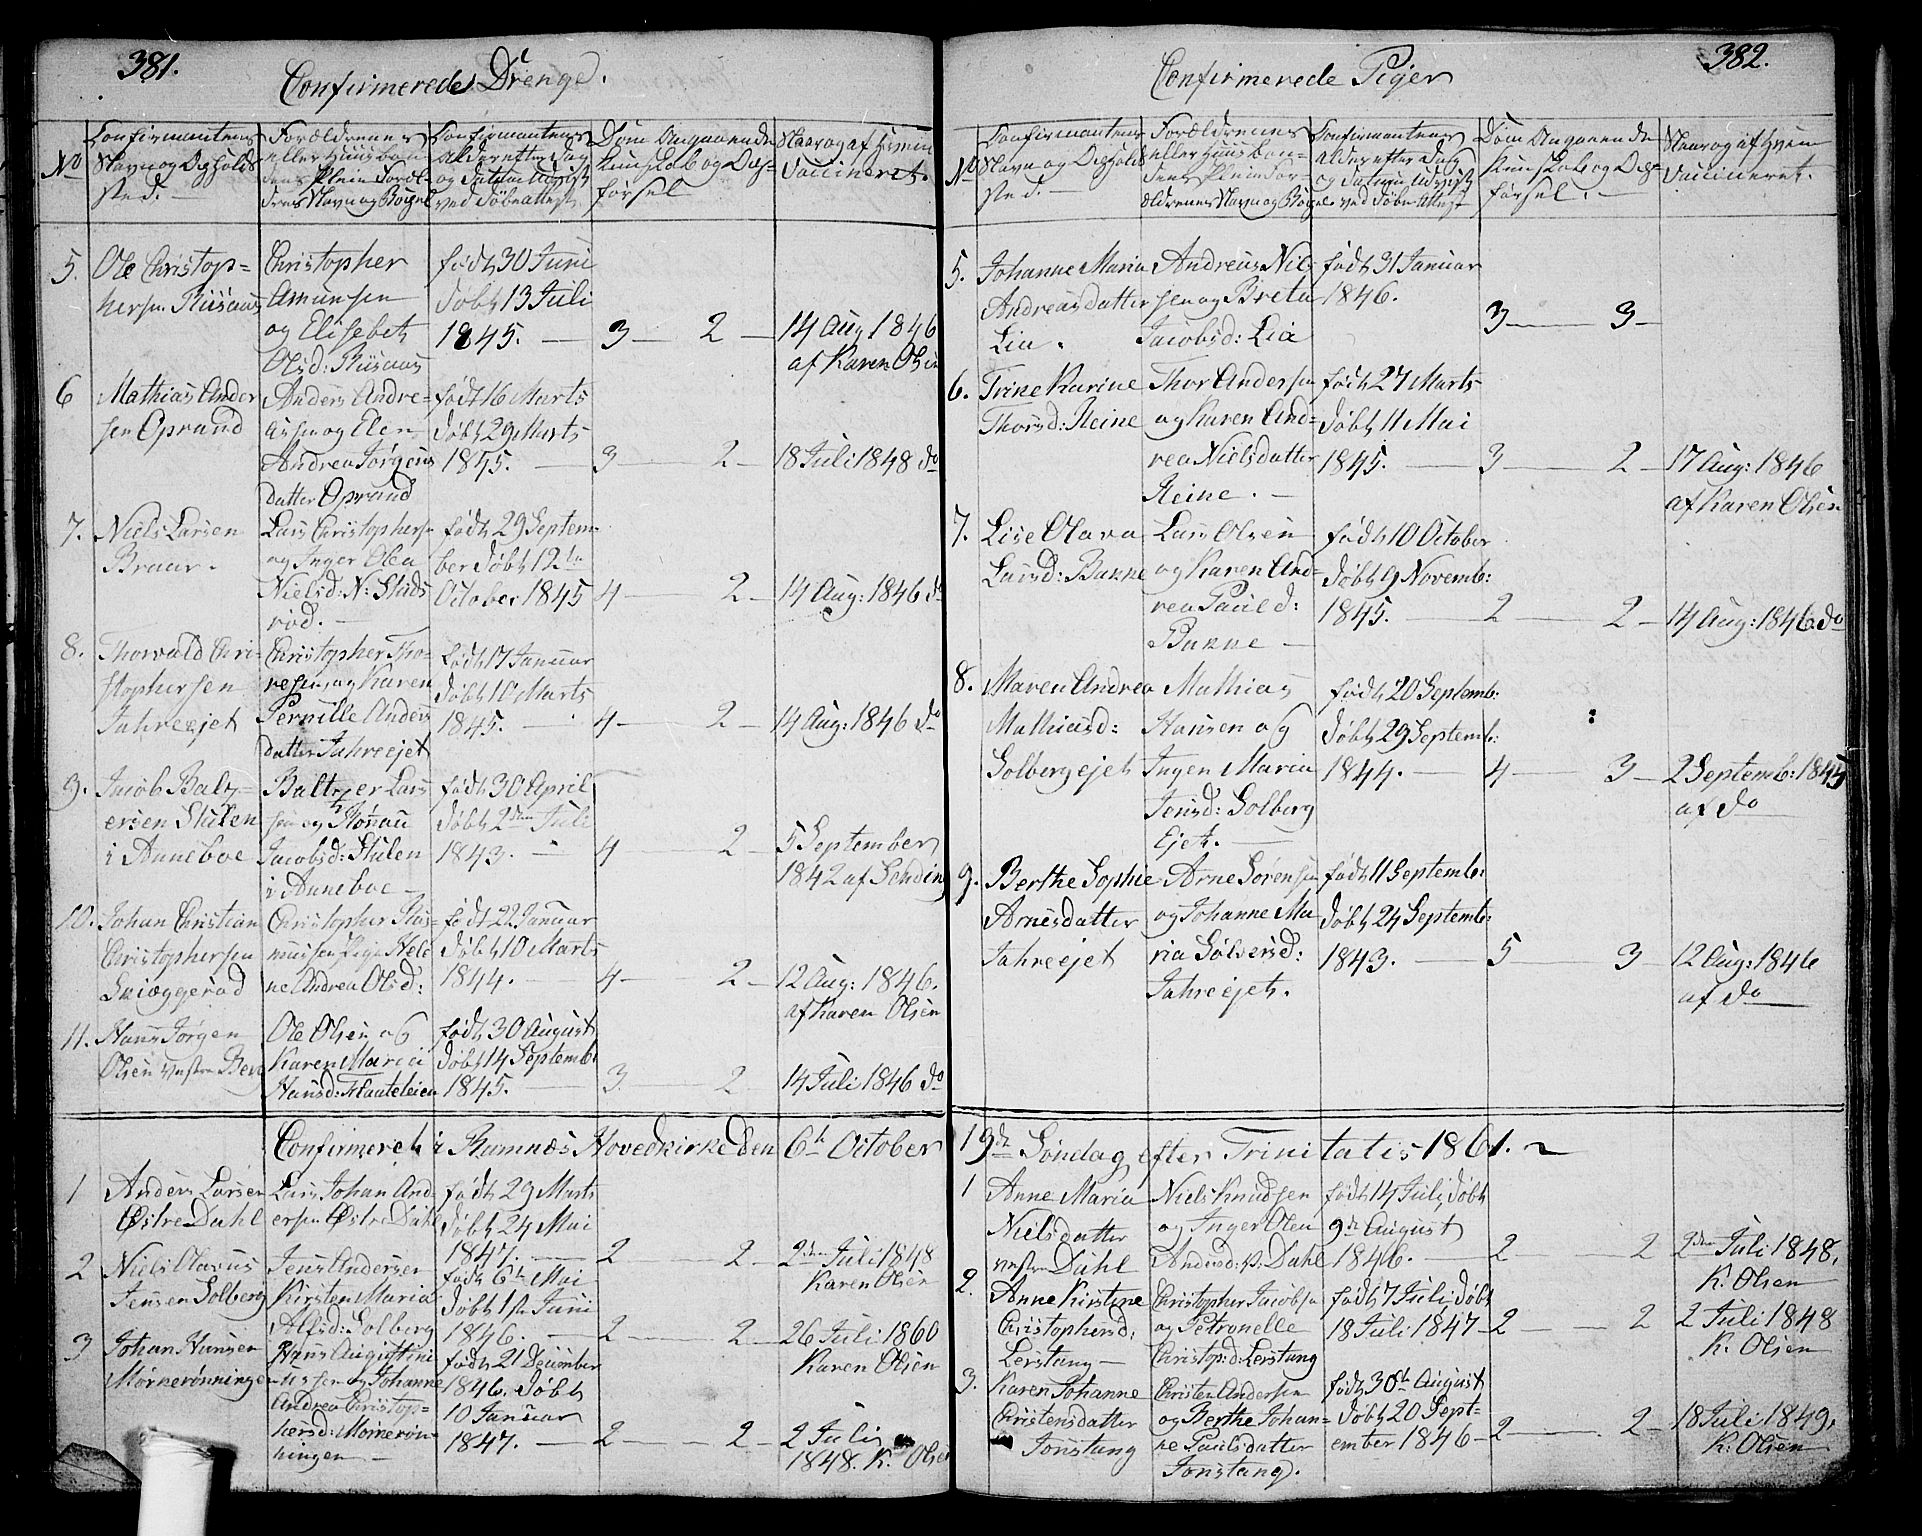 381.
Confirmerede Drenge.
No
Confirmantens
Navn og Opholds
sted.
Forældrenes
eller Huusbon
dens Pleieforæl-
dres Navn og Bopæl
Confirmantens
Alder efter Dag
og Datum udviist
ved Døbeattest
Dom Angaaende
Kundskab og Op-
førsel
Naar og af Hvem
Vaccineret.
5. Ole Christop-
hersen
Christopher
Amunsen
og Elisebet
Olsd:
født 30 Juni
Døbt 13 Juli
1845. —
3 — 2 —
14 Aug 1846
af Karen Olsen
6 Mathias Ander
sen Oprand
Anders Andre-
assen og Elen
Andrea Jørgens
datter Oprand
født 16 Marts
Døbt 29 Marts
1845. —
3 — 2 —
18 Juli 1848 do
7. Niels Larsen
Braar.
Lars Christophers
og Inger Olea
Nielsd: N: Stads
rød. —
født 29 Septem
ber Døbt 12te
October 1845
4 — 2 —
14 Aug: 1846 do
8. Thorvald Chri-
stophersen
Jahreejet
Christopher Tho-
resen og Karen
Pernille Anders
datter Jahreejet
født 17 Januar
Døbt 10 Marts
1845. —
4 — 2 —
14 Aug: 1846 do
9. Jacob Baltz-
ersen Stulen
i Anneboe
Baltzer Lars
sen og
Jacobsd: Stulen
i Anneboe —
født 30 April
Døbt 2den Juli
1843. —
4 — 2 —
5 September
1842 af
10. Johan Christian
Christophersen
Skiæggerød
Christopher Ras-
mussen Pige Hele
ne Andrea Olsd:
født 22 Januar
Døbt 10 Marts
1844. —
4 — 2 —
12 Aug: 1846.
af Karen Olsen
11. Hans Jørgen
Olsen
Ole Olsen og
Karen Maria
Hansd: Flaateleien
født 30 August
Døbt 14 Septemb:
1845. —
3. — 2
14 Juli 1846 do
Confirmeret i Ramnæs Hovedkirke Den 6te October
1 Anders Larsen
Østre Dahl
Lars Johan And-
ersen Østre Dahl
født 29 Marts
Døbt 24 Mai
1847. —
2 — 2 —
2den Juli 1848
Karen Olsen
2 Niels Olavus
Jensen Solberg
Jens Andersen
Kirsten Maria
Alfsd: Solberg
født 6te Mai
Døbt 1ste Juni
1846. —
2 — 2 —
26 Juli 1860
Karen Olsen
3 Johan Hansen
Mørkerønningen
Hans Augustini
ussen og Johanne
Andrea Christop-
hersd: Mørkerøn-
ningen —
født 21 December
1846. Døbt
10 Januar
1847. —
2 — 2 —
2 Juli
1848. K: Olsen
382.
Confirmerede Piger
No
Confirmantens
Navn og Opholds
sted. —
Forældrenes
eller Huusbon-
dens Pleiefor-
ældrenes Navn og Bopæl
Confirmantens
Alder efter Dag
og Datum udviist
ved Døbe Attest
Dom Angaaende
Kundskab og Op-
førsel. —
Naar og af Hvem
Vaccineret.
5. Johanne Maria
Andreasdatter
Lia.
Andreas Niels
sen og Breta
Jacobsd: Lia
født 31 Januar
1846.
3 — 3 —
6. Trine Karine
Thorsd: Reine
Thor Andersen
og Karen And-
rea Nielsdatter
Reine. —
født 27 Marts
Døbt 11 Mai
1845. —
3 — 2 —
17 Aug: 1846
af Karen Olsen
7. Lise Olava
Larsd: Bakke
Lars Olsen
og Karen And-
rea Pauld:
Bakke —
født 10 October
Døbt 9 Novemb:
1845. —
2 — 2 —
14 Aug: 1846 do
8. Maren Andrea
Mathiasd:
Solbergejet
Mathias
Hansen og
Inger Maria
Jensd: Solberg
Ejet. —
født 20 Septemb:
Døbt 29 Septemb:
1844. —
4 — 3 —
2 Septemb: 1845
af do
9. Berthe Sophie
Arnesdatter
Jahreejet
Arne Sørensen
og Johanne Ma
ria Sølversd:
Jahreejet.
født 11 Septemb:
Døbt 24 Septemb:
1843. —
5 — 3 —
12 Aug: 1846
af do
19de Søndag efter Trinitatis 1861.
1 Anne Maria
Nielsdatter
Dahl
Niels Knudsen
og Inger Olea
Andersd: v: Dahl
født 14 Juli Døbt
9de August
1846. —
2 — 2
2den Juli 1848.
K: Olsen
2. Anne Kirstine
Christophersd:
Lerstang —
Christopher Jacobsen
og Petronelle
Christop:d: Lerstang
født 7 Juli Døbt
18 Juli 1847 —
2 — 2
2 Juli 1848
K: Olsen
3. Karen Johanne
Christensdatter
Jonstang
Christen Andersen
og Berthe Johan-
ne Paulsdatter
Jonstang.
født 30te August
Døbt 20 Sept-
ember 1846 —
2 — 2 —
18 Juli 1849.
K: Olsen